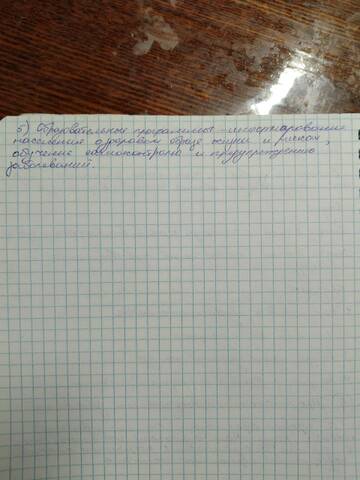 5) Образовательные программы - информирование
населения о здоровом образе жизни и рисках,
обучение самоконтролю и предупреждению
заболеваний.